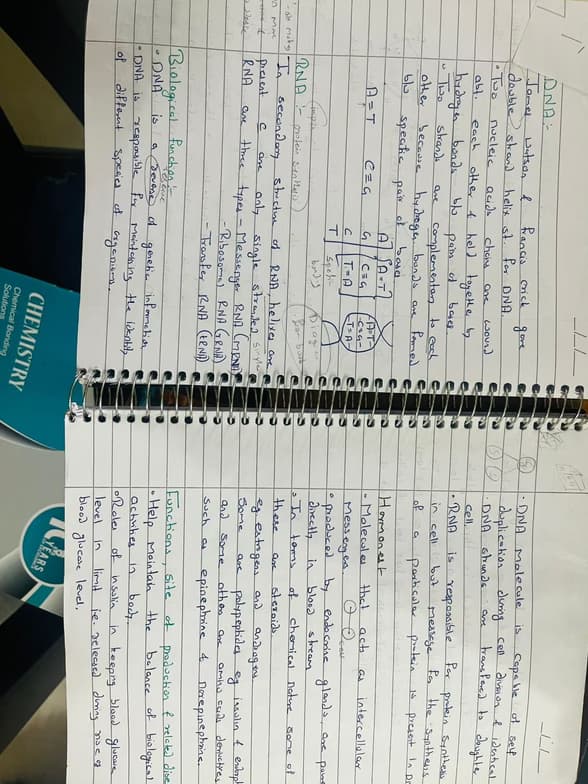 DNA :-
James Watson & Francis crick gave
double strand helix st. for DNA.
• Two nucleic acids chains are wound
abt. each other & held together by
hydrogen bonds b/w pairs of bases.
• Two strands are complementary to each
other because hydrogen bonds are formed
b/w specific pair of bases
A=T C≡G
A A=T
G C≡G
C
T T=A
RNA :- protein synthesis
In secondary structure of RNA helices are
present & are only single stranded
RNA are three types - Messenger RNA (mRNA)
- Ribosomal RNA (rRNA)
- Transfer RNA (tRNA)
Biological function :-
• DNA is a reserve of genetic information
• DNA is responsible for maintaining the identity
of different species of organisms.
• DNA molecule is capable of self
duplication during cell division & identical
DNA strands are transferred to daughter
cell.
• RNA is responsible for protein synthesis
in cell but message for the synthesis
of a particular protein is present in
Hormones
• Molecules that act as intercellular
messenger
• produced by endocrine glands, are
directly in blood stream
• In terms of chemical nature some of
these are steroids
eg estrogens and androgens
some are polypeptides eg insulin &
and some other are amino acid derivatives
such as epinephrine & norepinephrine.
Functions, site of production & related
• Help maintain the balance of biological
activities in body.
• Role of insulin in keeping blood glucose
level in limit i.e. released during rise of
blood glucose level.
CHEMISTRY
Chemical Bonding
Solutions
YEARS